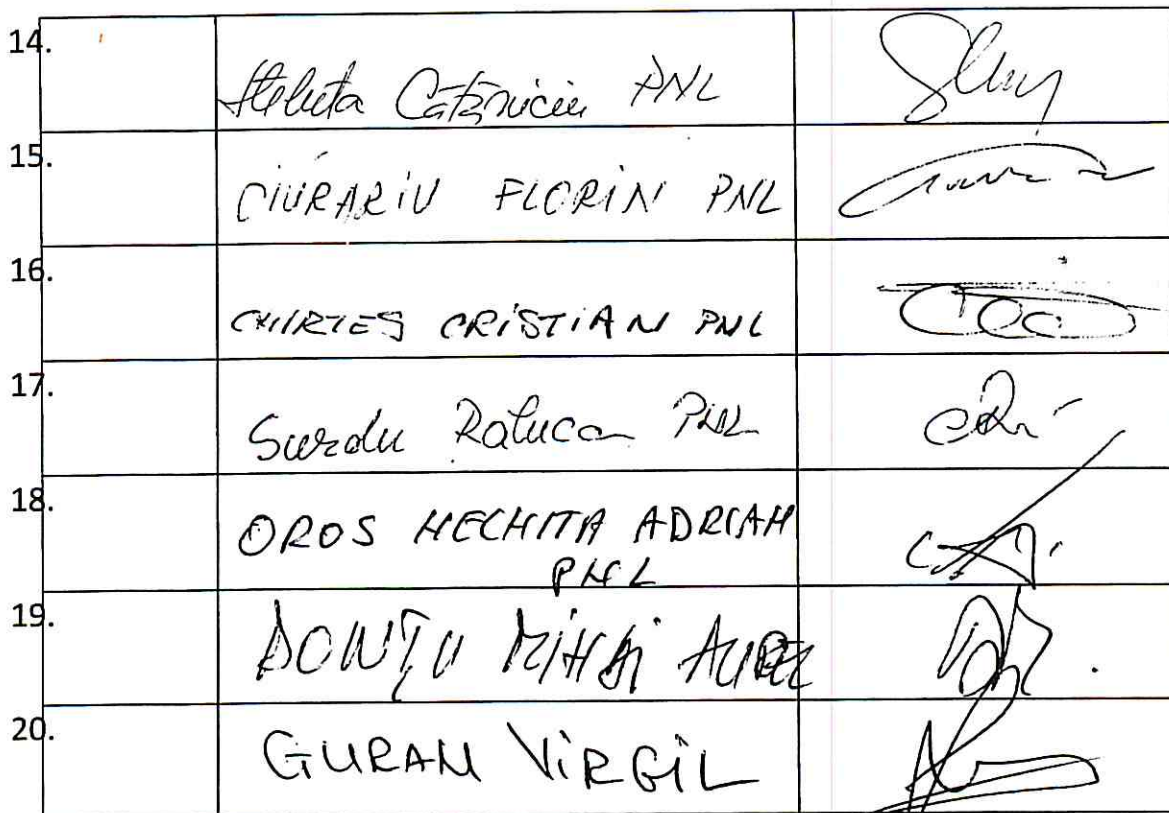 14.
Steluta Cătăniciu PNL
15.
CIURARIU FLORIN PNL
16.
CHIRTEȘ CRISTIAN PNL
17.
Surdu Raluca PNL
18.
OROS NECHITA ADRIAN
PNL
19.
DONȚU MIHAI AUREL
20.
GURAN VIRGIL